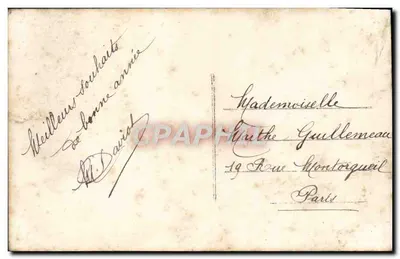 Meilleurs souhaits
de bonne année
M. Daviot
CPARAMA
Mademoiselle
Marthe Guillemeau
19 Rue Montorgueil
Paris